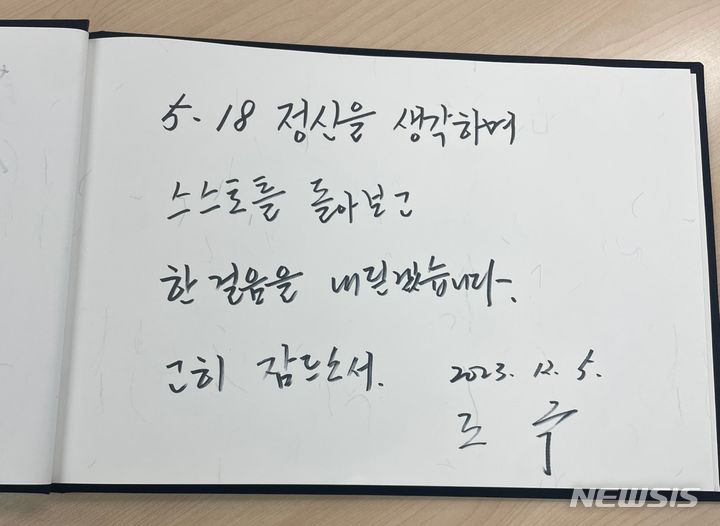 5·18 정신을 생각하며
스스로를 돌아보고
한 걸음을 내딛겠습니다.
고히 잠드소서.
2023. 12. 5.
조 국
NEWSIS